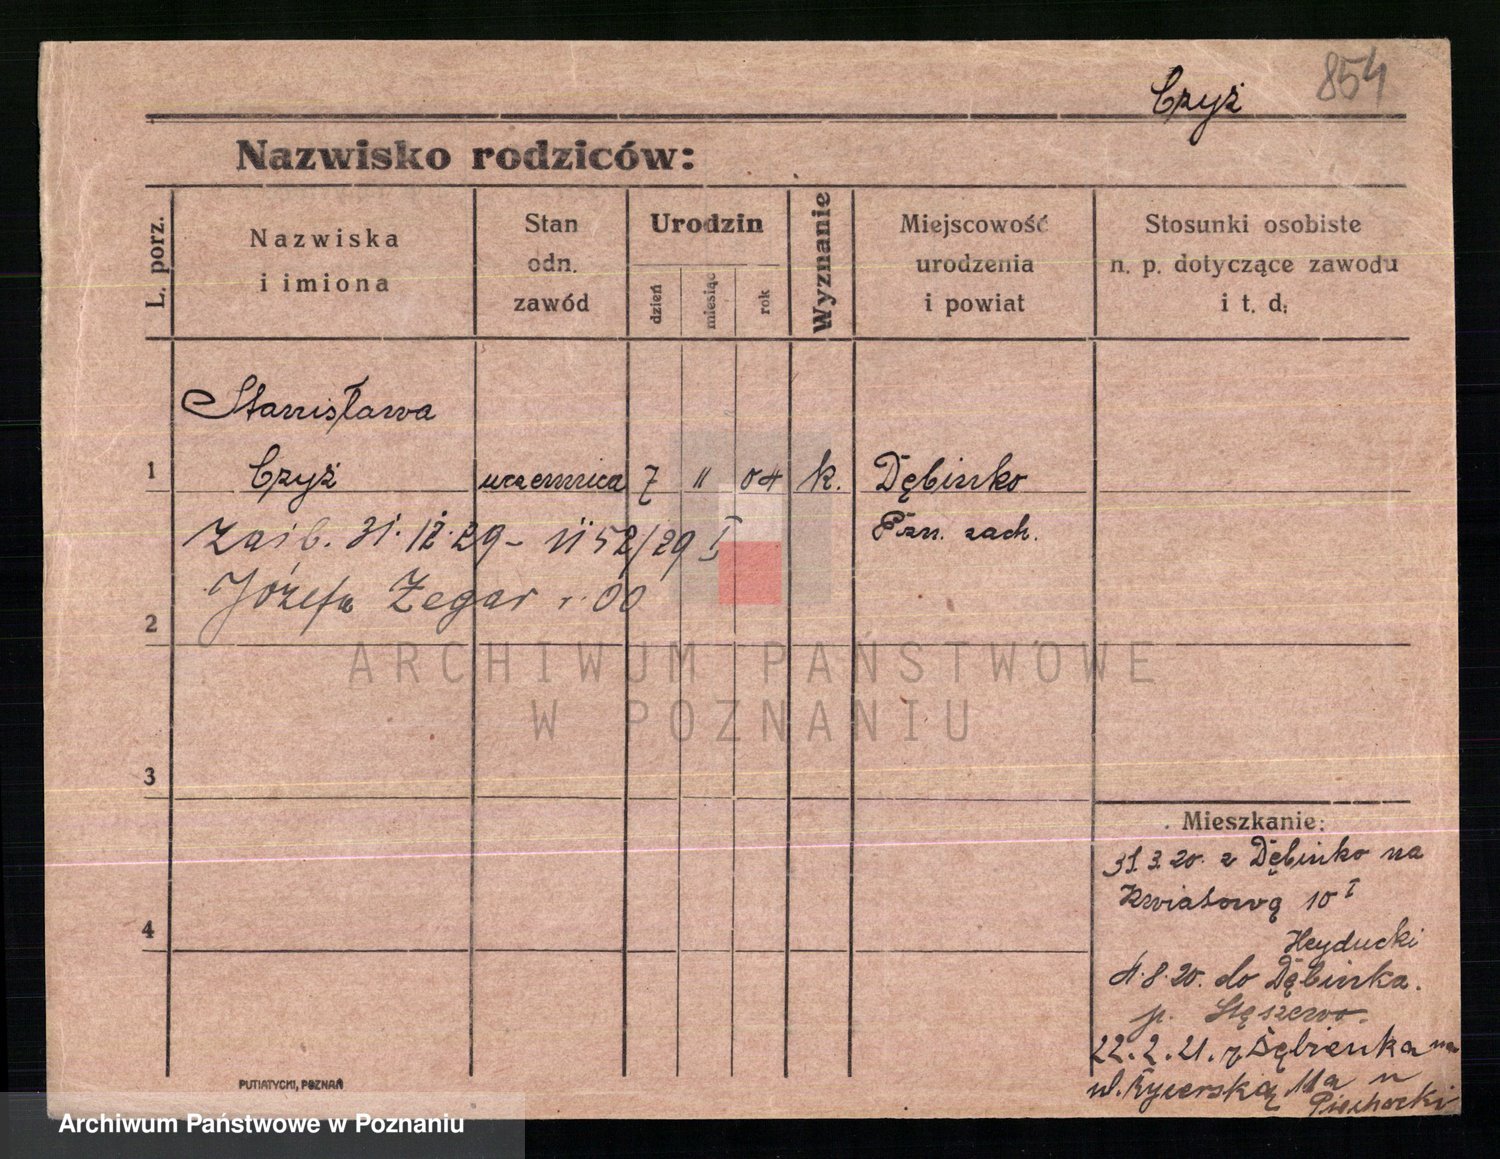 Czyż 854
Nazwisko rodziców:
L. porz.
Nazwiska
i imiona
Stan
odn.
zawód
Urodzin
dzień
miesiąc
rok
Wyznanie
Miejscowość
urodzenia
i powiat
Stosunki osobiste
n. p. dotyczące zawodu
i t. d.
Stanisława
1 Czyż uczennica 7 11 04 k. Dębinko
Pzn. zach.
31. 12. 29 - 52/29 I
Józef Zegar 00
2
3
4
Mieszkanie:
31.3.20. z Dębinko na
Kwiatową 10 I
Heyducki
4.8.20. do Dębinka.
p. Stęszewo.
22.2.21. z Dębienka na
ul. Rycerską 11a u
Piechocki
PUTIATYCKI, POZNAŃ
ARCHIWUM PAŃSTWOWE
W POZNANIU
Archiwum Państwowe w Poznaniu